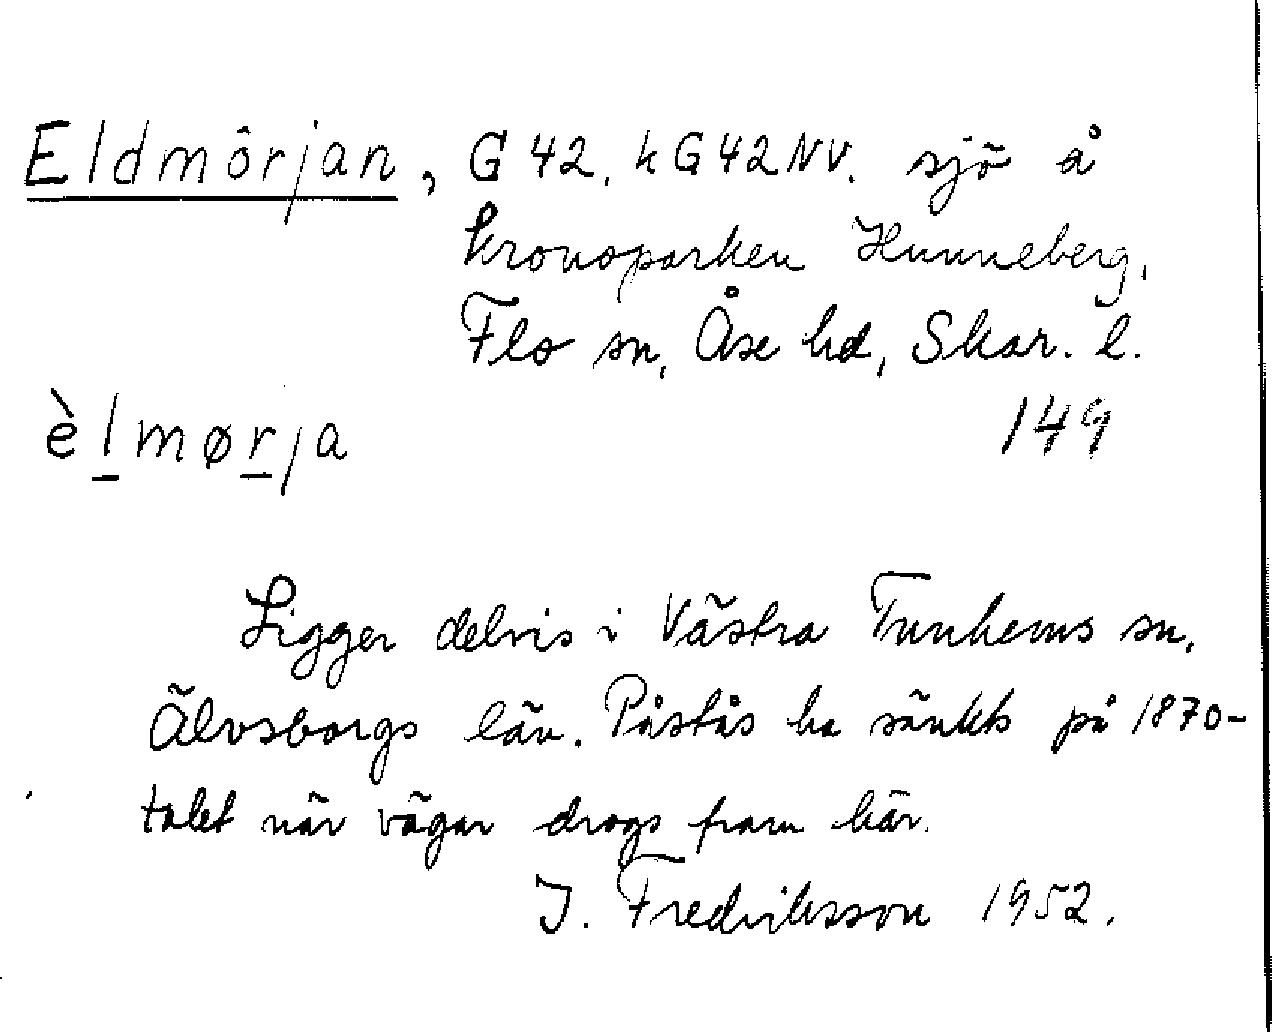 Eldmörjan, G 42. kG42NV. sjö å
kronoparken Hunneberg,
Flo sn, Åse hd, Skar. l.
èlmørja 149
Ligger delvis i Västra Tunhems sn,
Älvsborgs län. Påstås ha sänkts på 1870-
talet när vägar drogs fram här.
I. Fredriksson 1952.